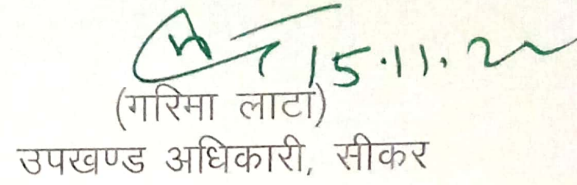 15.11.2
(गरिमा लाटा)
उपखण्ड अधिकारी, सीकर